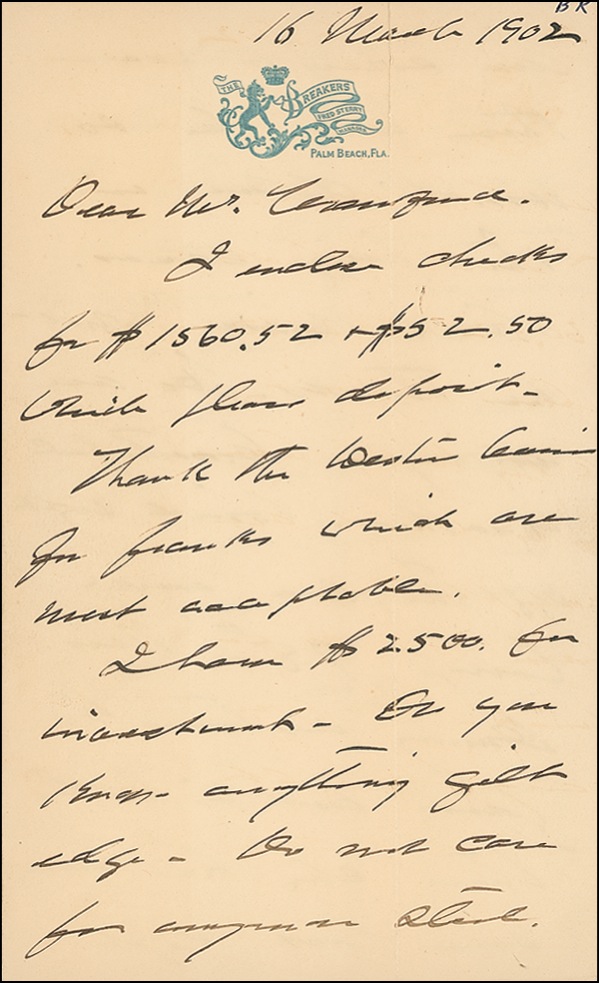 B R
16 March 1902
THE BREAKERS
FRED STERRY
MANAGER
PALM BEACH, FLA.
Dear Mr. Crawford.
I enclose checks
for $1560.52 + $52.50
which please deposit-
Thank the Western Union
for franks which are
most acceptable.
I have $2500. for
investment - Do you
know anything gilt
edge - Do not care
for any more Steel.